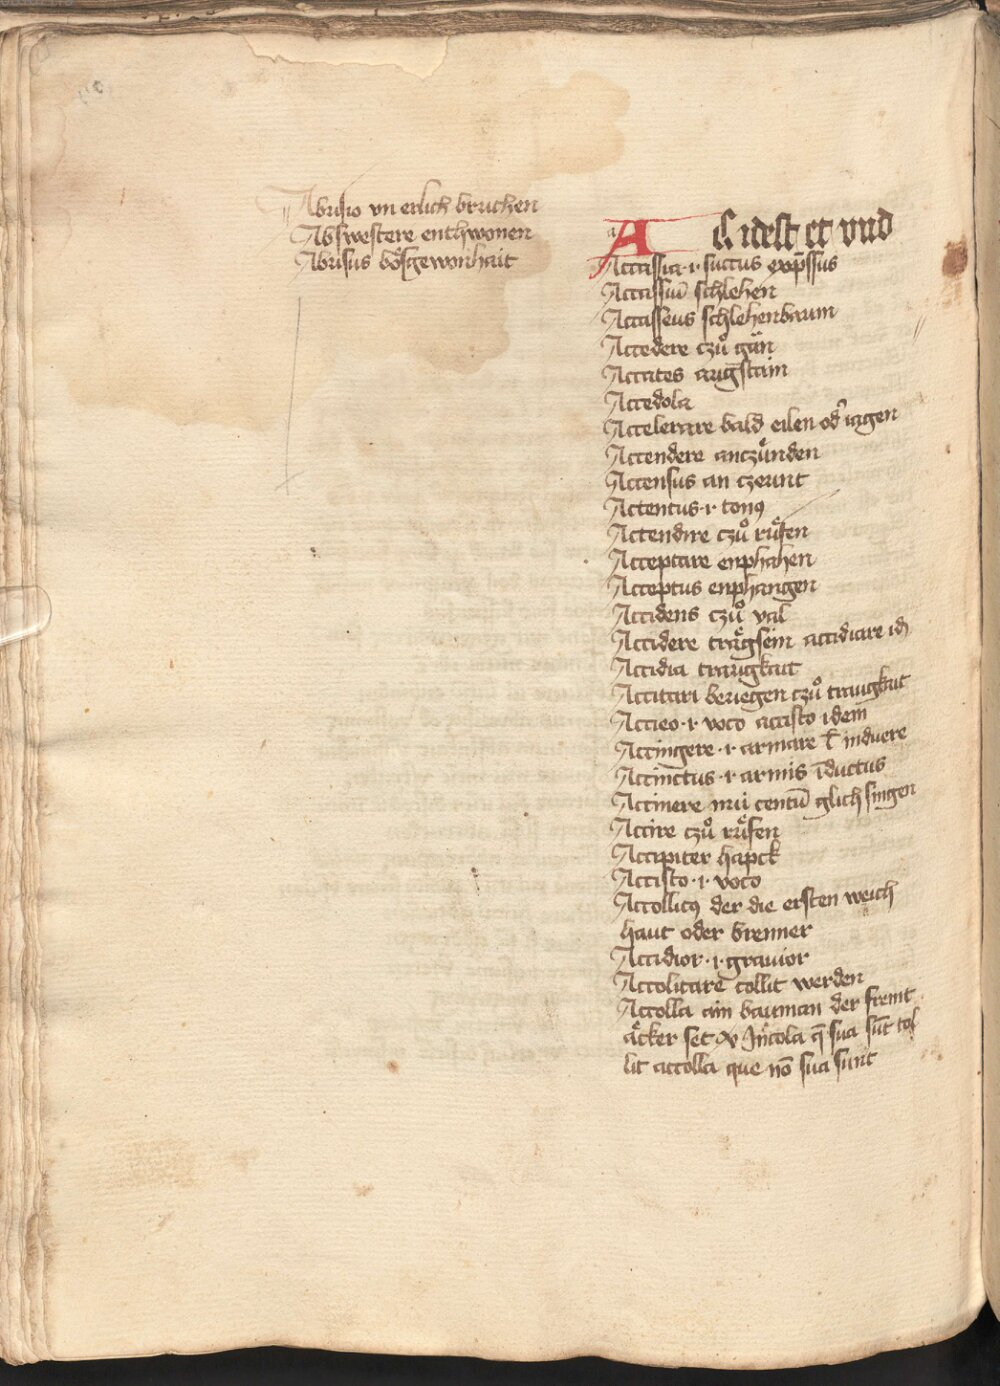 Abusio vn erlich bruchen
Abswestere enthwonen
Abusus bo̊sgewonhait
AC idest et vnd
Accassia ·i· succus exp̄ssus
Accassiū schlehen
Accasseus schlehenbaum
Accedere czů gån
Accates augstain
Accedola
Accelerare bald eilen od̕ iagen
Accendere anczůnden
Accensus an czeunt
Accentus ·i· tonꝰ
Accendire czů růfen
Acceptare enphahen
Acceptus enphangen
Accidens czů val
Accidere trågsein accidiare id
Accidia traugkait
Accitari bewegen czů traugkait
Accieo ·i· voco accisto idem
Accingere ·i· armare ł induere
Accinctus ·i· armis īductus
Accinere mit centū glich singen
Accire czů růfen
Accipiter hapck
Accisto ·i· voco
Accollitꝰ der die ersten weich
haut oder brenner
Accidior ·i· grauior
Accolitare collit werden
Accolla ain bauman der fremt
åcker set Incola q̄ sua sūt col
lit accolla que nō sua sunt